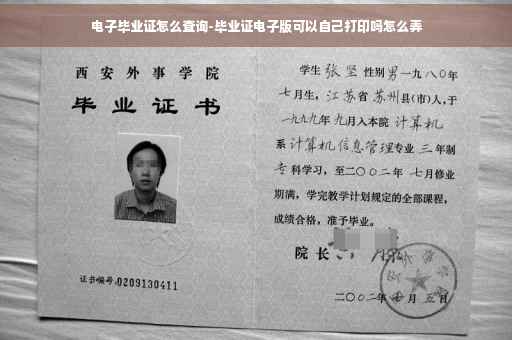 电子毕业证怎么查询-毕业证电子版可以自己打印吗怎么弄
西安外事学院
毕业证书
证书编号:0209130411
学生 张坚 性别 男 一九八〇年
七月生，江苏省 苏州县(市)人,于
一九九九年 九月入本院 计算机
系 计算机信息管理专业 三 年制
专科学习，至二〇〇二年 七月修业
期满，学完教学计划规定的全部课程，
成绩合格，准予毕业。
院长
二〇〇二年 月 五日